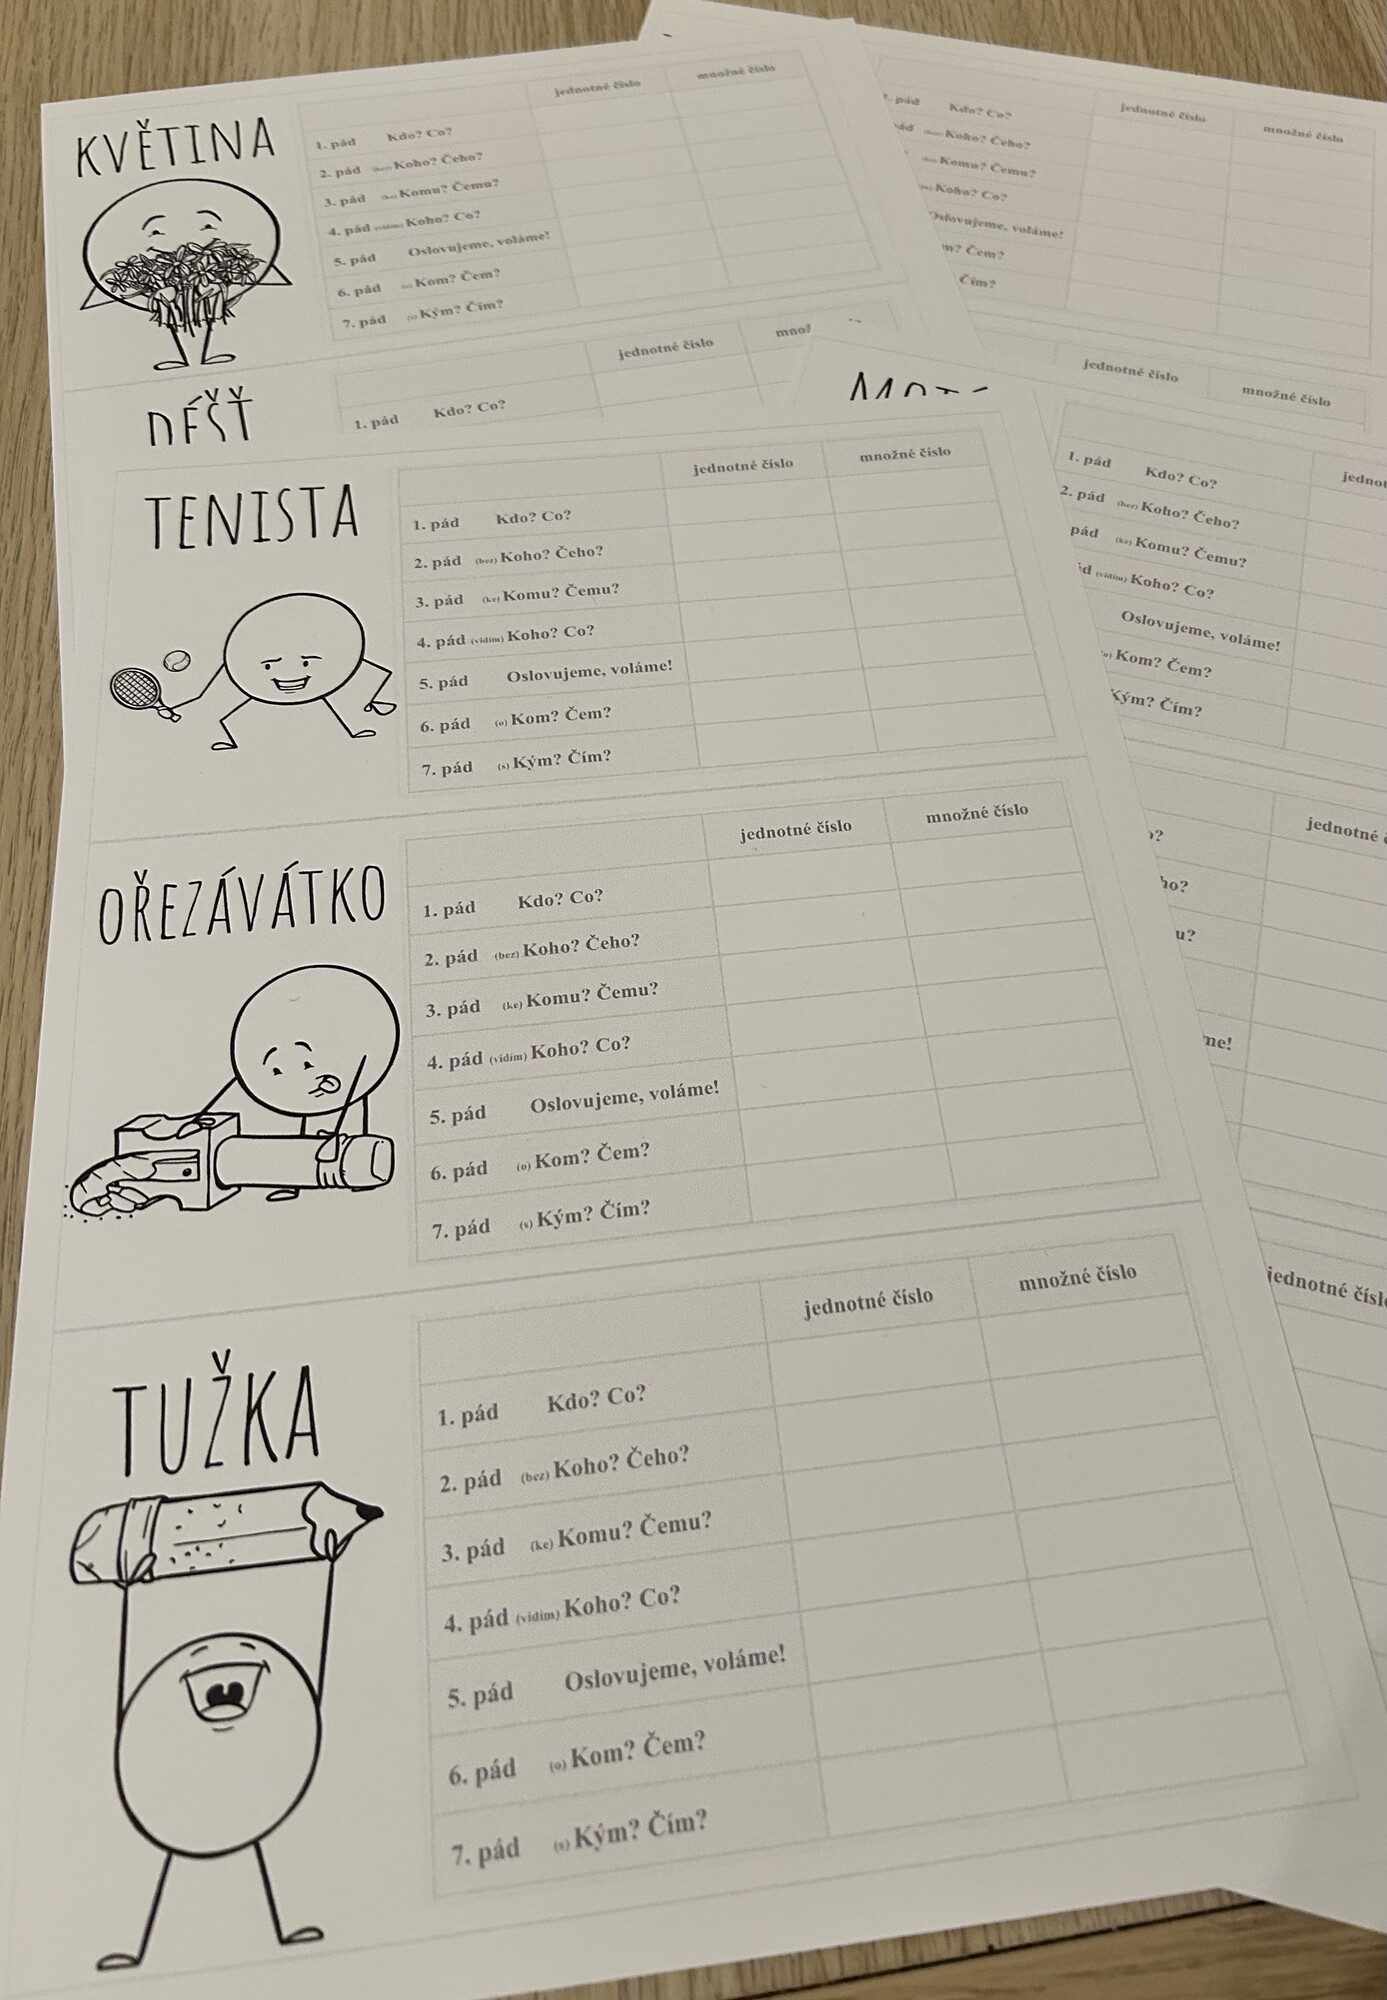 KVĚTINA
jednotné číslo množné číslo
1. pád Kdo? Co?
2. pád (bez) Koho? Čeho?
3. pád (ke) Komu? Čemu?
4. pád (vidím) Koho? Co?
5. pád Oslovujeme, voláme!
6. pád (o) Kom? Čem?
7. pád (s) Kým? Čím?
DÉŠŤ
jednotné číslo množ
1. pád Kdo? Co?
TENISTA
jednotné číslo množné číslo
1. pád Kdo? Co?
2. pád (bez) Koho? Čeho?
3. pád (ke) Komu? Čemu?
4. pád (vidím) Koho? Co?
5. pád Oslovujeme, voláme!
6. pád (o) Kom? Čem?
7. pád (s) Kým? Čím?
OŘEZÁVÁTKO
jednotné číslo množné číslo
1. pád Kdo? Co?
2. pád (bez) Koho? Čeho?
3. pád (ke) Komu? Čemu?
4. pád (vidím) Koho? Co?
5. pád Oslovujeme, voláme!
6. pád (o) Kom? Čem?
7. pád (s) Kým? Čím?
TUŽKA
jednotné číslo množné číslo
1. pád Kdo? Co?
2. pád (bez) Koho? Čeho?
3. pád (ke) Komu? Čemu?
4. pád (vidím) Koho? Co?
5. pád Oslovujeme, voláme!
6. pád (o) Kom? Čem?
7. pád (s) Kým? Čím?
jednotné číslo množné číslo
pád Kdo? Co?
Koho? Čeho?
Komu? Čemu?
Koho? Co?
Oslovujeme, voláme!
Čem?
Čím?
jednotné číslo množné číslo
jednot
1. pád Kdo? Co?
2. pád (bez) Koho? Čeho?
pád (ke) Komu? Čemu?
(vidím) Koho? Co?
Oslovujeme, voláme!
Kom? Čem?
Kým? Čím?
jednotné
jednotné čísl